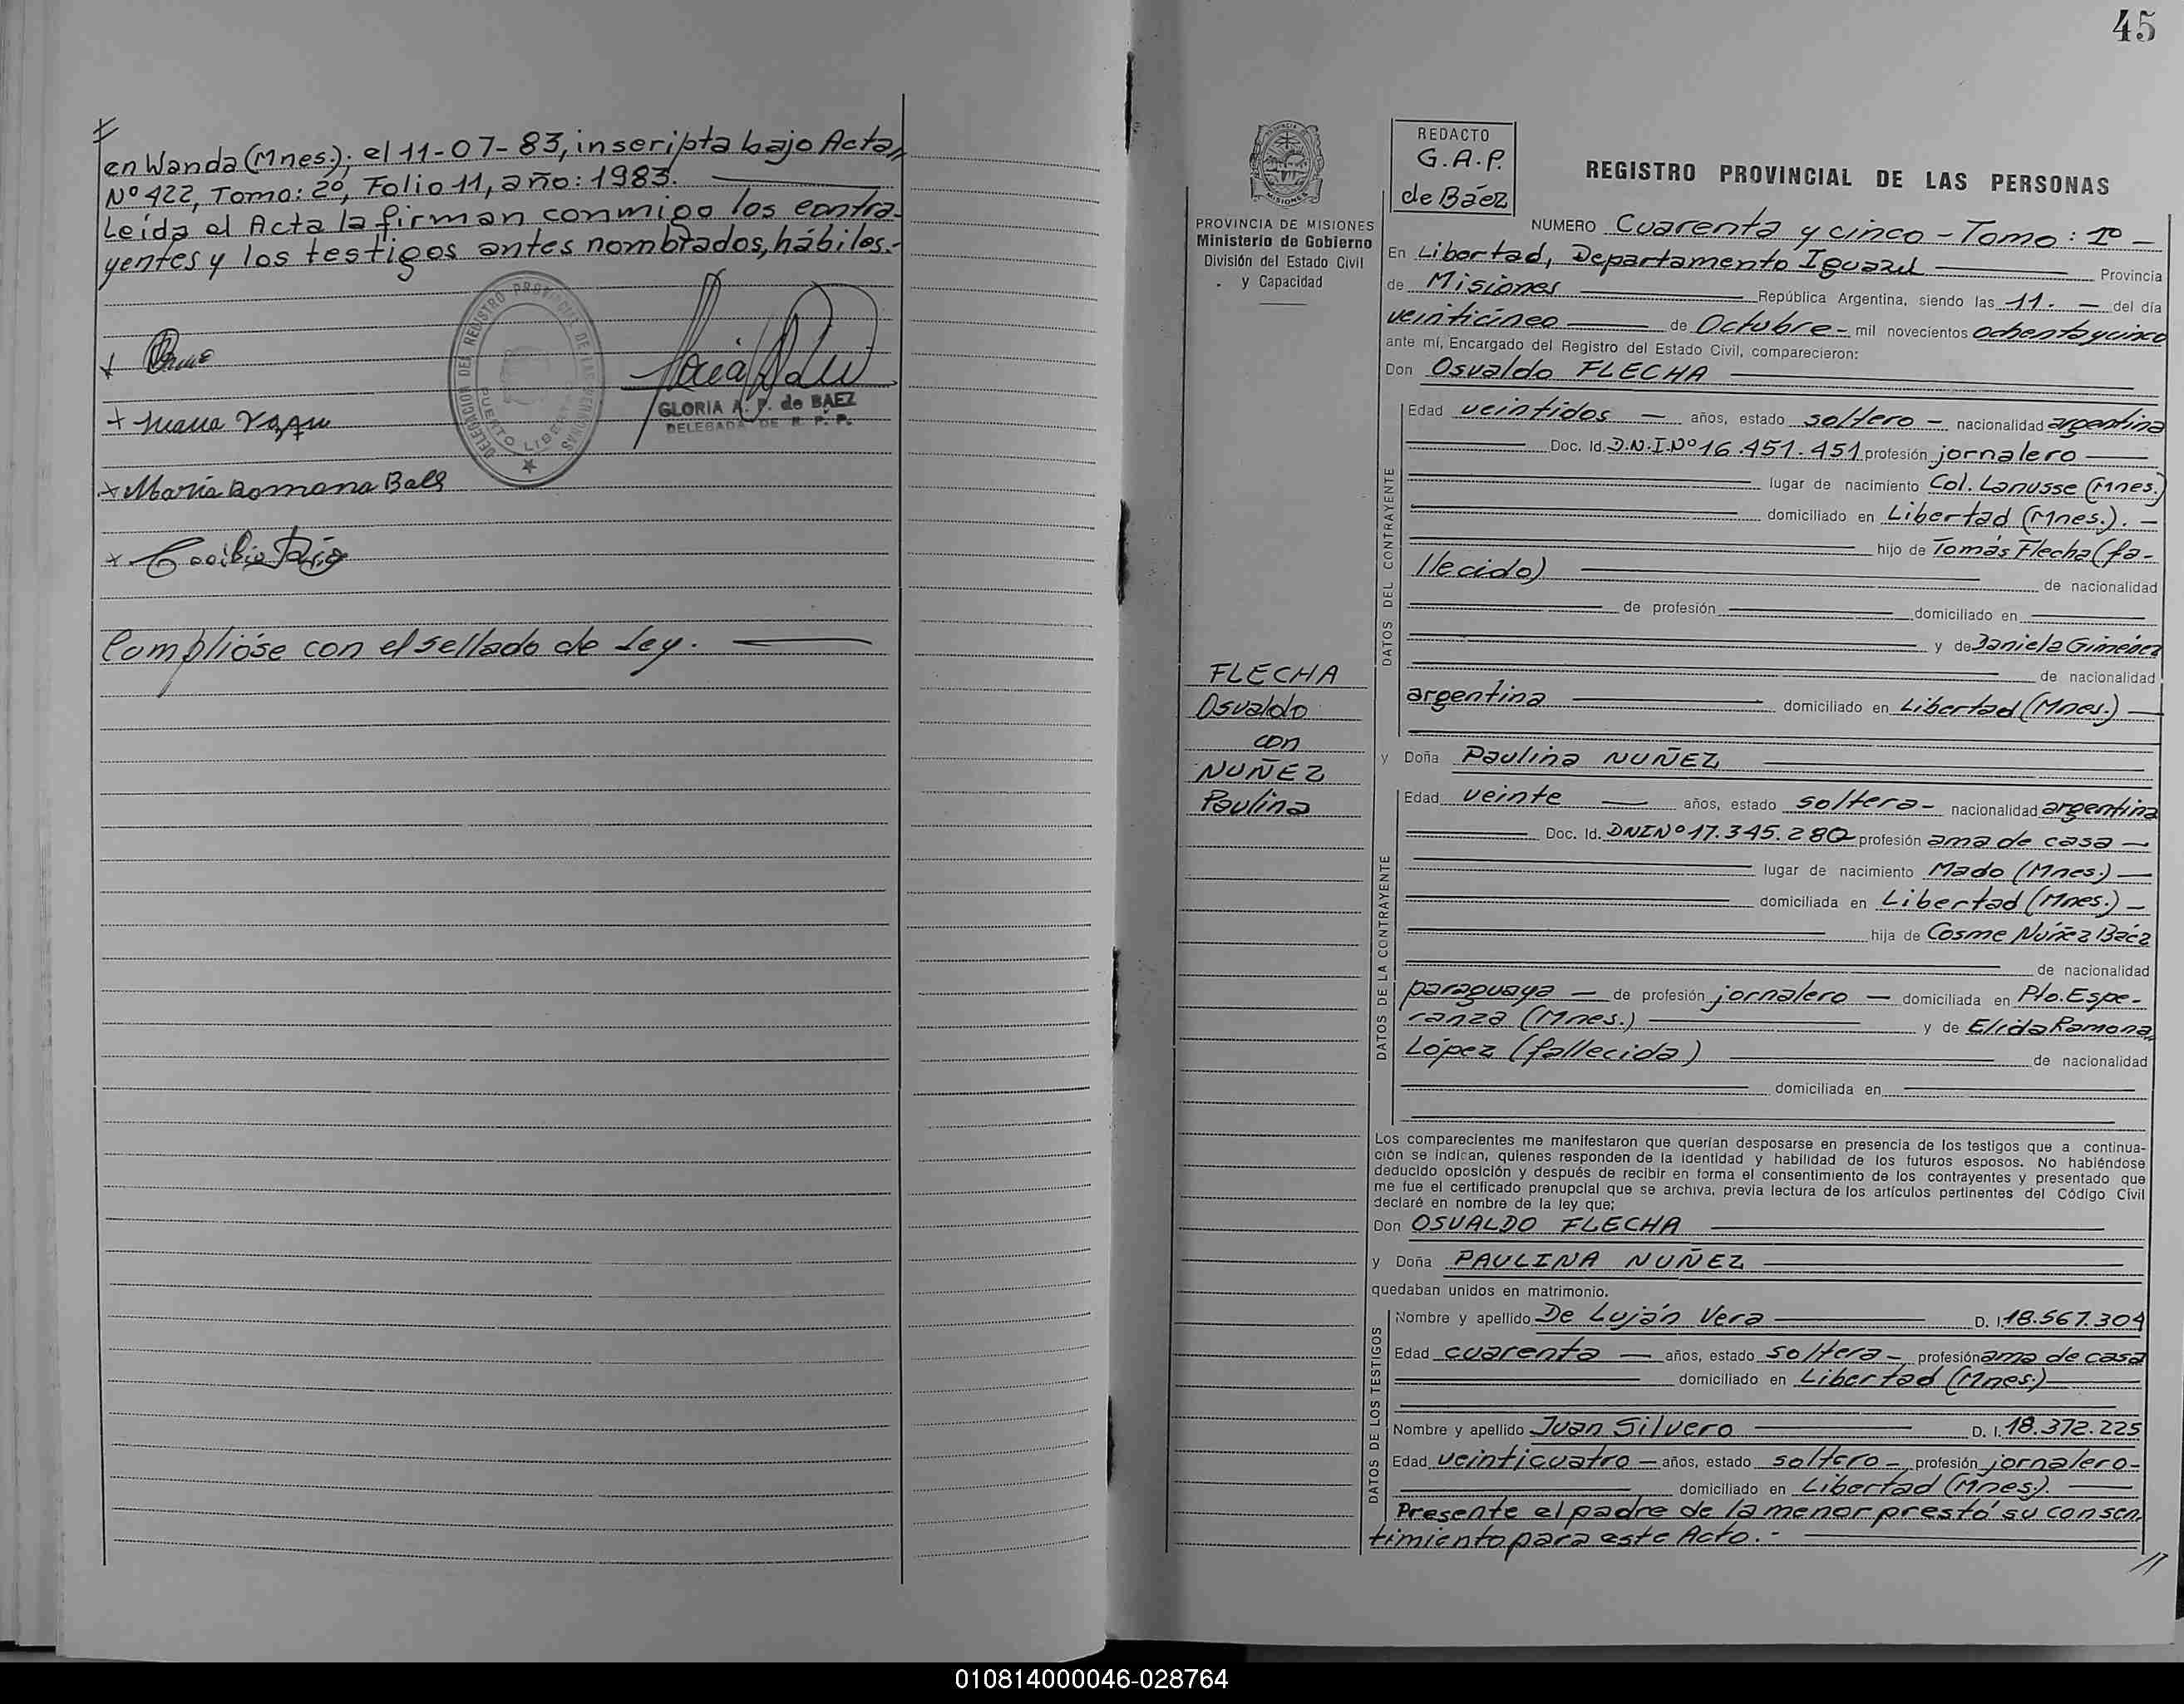 en Wanda (Mnes.); el 11-07-83, inscripta bajo Acta,,
Nº 422, Tomo: 2º, Folio 11, año: 1983.
Leída el Acta la firman conmigo los contra-
yentes y los testigos antes nombrados, hábiles.-
DELEGACION DEL REGISTRO PROVINCIAL DE LAS PERSONAS
PUERTO LIBERTAD
GLORIA A. P. de BAEZ
DELEGADA DE R. P. P.
+ María Romona
+ Cecilio
Complióse con el sellado de Ley.
45
REDACTO
G.A.P.
de Báez
REGISTRO PROVINCIAL DE LAS PERSONAS
PROVINCIA DE MISIONES
Ministerio de Gobierno
División del Estado Civil
y Capacidad
NUMERO Cuarenta y cinco - Tomo: 1º -
En Libertad, Departamento Iguazú Provincia
de Misiones República Argentina, siendo las 11.- del día
veinticinco de Octubre - mil novecientos ochenta y cinco
ante mí, Encargado del Registro del Estado Civil, comparecieron:
Don Osvaldo FLECHA
DATOS DEL CONTRAYENTE
Edad veintidos - años, estado soltero - nacionalidad argentina
Doc. Id. D.N.I.Nº 16.451.451 profesión jornalero
lugar de nacimiento Col. Lanusse (Mnes.)
domiciliado en Libertad (Mnes.). -
hijo de Tomás Flecha (fa-
llecido) de nacionalidad
de profesión domiciliado en
y de Daniela Giménez
de nacionalidad
argentina domiciliado en Libertad (Mnes.)
FLECHA
Osvaldo
con
NUÑEZ
Paulina
y Doña Paulina NUÑEZ
DATOS DE LA CONTRAYENTE
Edad veinte - años, estado soltera - nacionalidad argentina
Doc. Id. DNINº 17.345.280 profesión ama de casa -
lugar de nacimiento Mado (Mnes.)
domiciliada en Libertad (Mnes.) -
hija de Cosme Núñez Báez
de nacionalidad
paraguaya - de profesión jornalero - domiciliada en Pto. Espe-
ranza (Mnes.) y de Elida Ramona,,
López (fallecida) de nacionalidad
domiciliada en
Los comparecientes me manifestaron que querían desposarse en presencia de los testigos que a continua-
ción se indican, quienes responden de la identidad y habilidad de los futuros esposos. No habiéndose
deducido oposición y después de recibir en forma el consentimiento de los contrayentes y presentado que
me fue el certificado prenupcial que se archiva, previa lectura de los artículos pertinentes del Código Civil
declaré en nombre de la ley que;
Don OSVALDO FLECHA
y Doña PAULINA NUÑEZ
quedaban unidos en matrimonio.
DATOS DE LOS TESTIGOS
Nombre y apellido De Luján Vera D. I. 18.567.304
Edad cuarenta - años, estado soltera - profesión ama de casa
domiciliado en Libertad (Mnes.)
Nombre y apellido Juan Silvero D. I. 18.372.225
Edad veinticuatro - años, estado soltero - profesión jornalero -
domiciliado en Libertad (Mnes.).
Presente el padre de la menor prestó su consen
timiento para este Acto.-
//
010814000046-028764